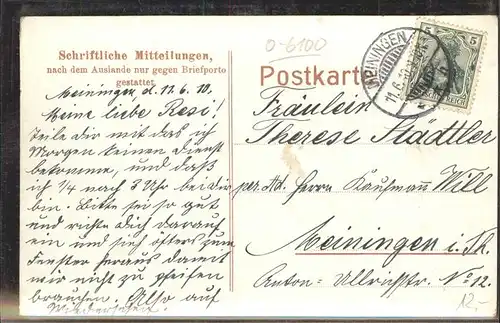 Schriftliche Mitteilungen,
nach dem Auslande nur gegen Briefporto
gestattet.
Meiningen, d. 11.6.10.
Meine liebe Resi!
Teile Dir mit das ich
Morgen keinen Dienst
bekomme, und daß
ich ¼ nach 8 Uhr bei dir
bin. Bitte sei so gut
und richte Dich darauf
ein und sieh öfters zum
Fenster heraus damit
wir nicht zu pfeifen
brauchen. Also auf
Wiedersehen.
0-6100
Postkarte
MEININGEN
11.6.10
5
5
REICH
Fräulein
Therese Städtler
per. Ad. Herrn Kaufmann Will
Meiningen i. Th.
Anton-Ullrichstr. No 12.
12,-